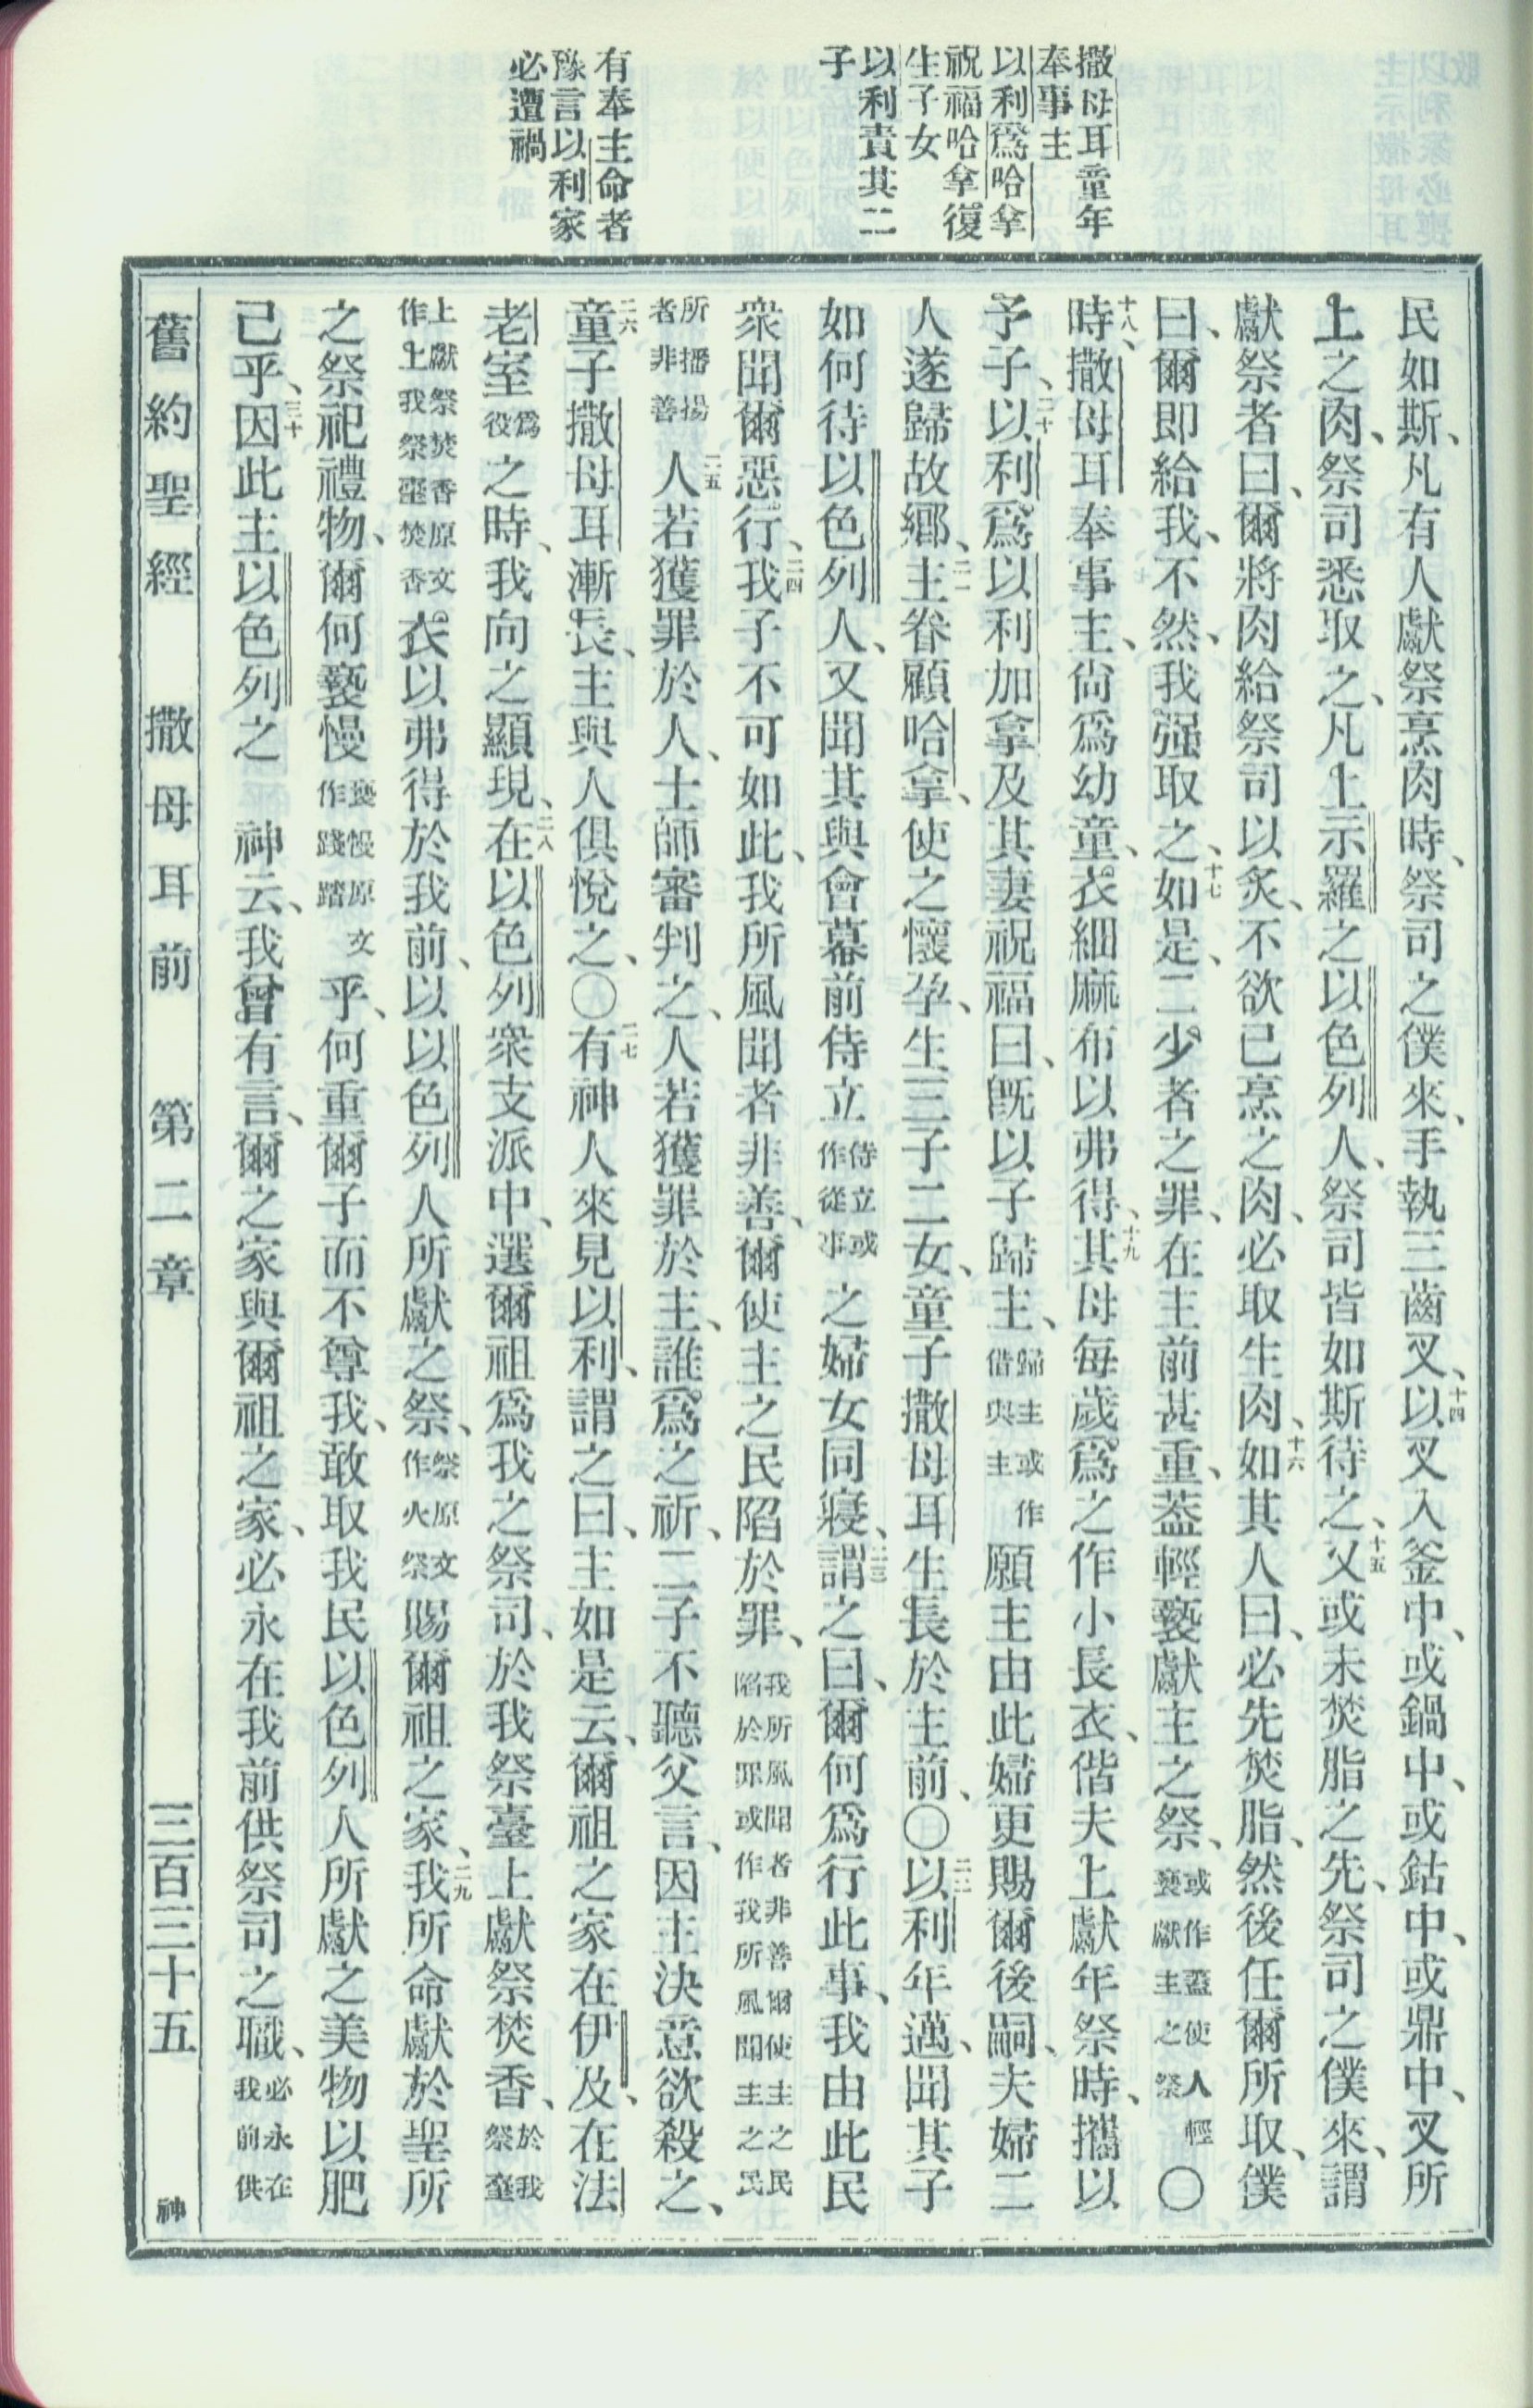 撒母耳童年
奉事主
以利爲哈拿
祝福哈拿復
生子女
以利責其二
子
有奉主命者
豫言以利家
必遭禍
民如斯、凡有人獻祭烹肉時、祭司之僕來、手執三齒叉、十四以叉入釜中、或鍋中、或鈷中、或鼎中、叉所
上之肉、祭司悉取之、凡上示羅之以色列人、祭司皆如斯待之、十五又或未焚脂之先、祭司之僕來、謂
獻祭者曰、爾將肉給祭司以炙、不欲已烹之肉、必取生肉、十六如其人曰、必先焚脂、然後任爾所取、僕
曰、爾即給我、不然、我强取之、十七如是、二少者之罪、在主前甚重、蓋輕褻獻主之祭、或作蓋使人輕褻獻主之祭〇
十八時、撒母耳奉事主、尙爲幼童、衣細麻布以弗得、十九其母每歲爲之作小長衣、偕夫上獻年祭時、攜以
予子、二十以利爲以利加拿及其妻祝福曰、旣以子歸主、歸主或作借與主願主由此婦更賜爾後嗣、夫婦二
人遂歸故鄉、二一主眷顧哈拿、使之懷孕、生三子二女、童子撒母耳生長於主前、〇二二以利年邁、聞其子
如何待以色列人、又聞其與會幕前侍立侍立或作從事之婦女同寢、二三謂之曰、爾何爲行此事、我由此民
衆聞爾惡行、二四我子不可如此、我所風聞者非善、爾使主之民陷於罪、我所風聞者非善爾使主之民陷於罪或作我所風聞主之民
所播揚者非善二五人若獲罪於人、士師審判之、人若獲罪於主、誰爲之祈、二子不聽父言、因主決意欲殺之、
二六童子撒母耳漸長、主與人俱悅之、〇二七有神人來見以利、謂之曰、主如是云、爾祖之家在伊及、在法
老室爲役之時、我向之顯現、二八在以色列衆支派中、選爾祖爲我之祭司、於我祭臺上獻祭焚香、於我祭臺
上獻祭焚香原文作上我祭臺焚香衣以弗得於我前、以以色列人所獻之祭、祭原文作火祭賜爾祖之家、二九我所命獻於聖所
之祭祀禮物、爾何褻慢褻慢原文作踐踏乎、何重爾子而不尊我、敢取我民以色列人所獻之美物以肥
己乎、三十因此主以色列之　神云、我曾有言、爾之家與爾祖之家、必永在我前供祭司之職、必永在我前供
舊約聖經　撒母耳前　第二章　三百三十五　神